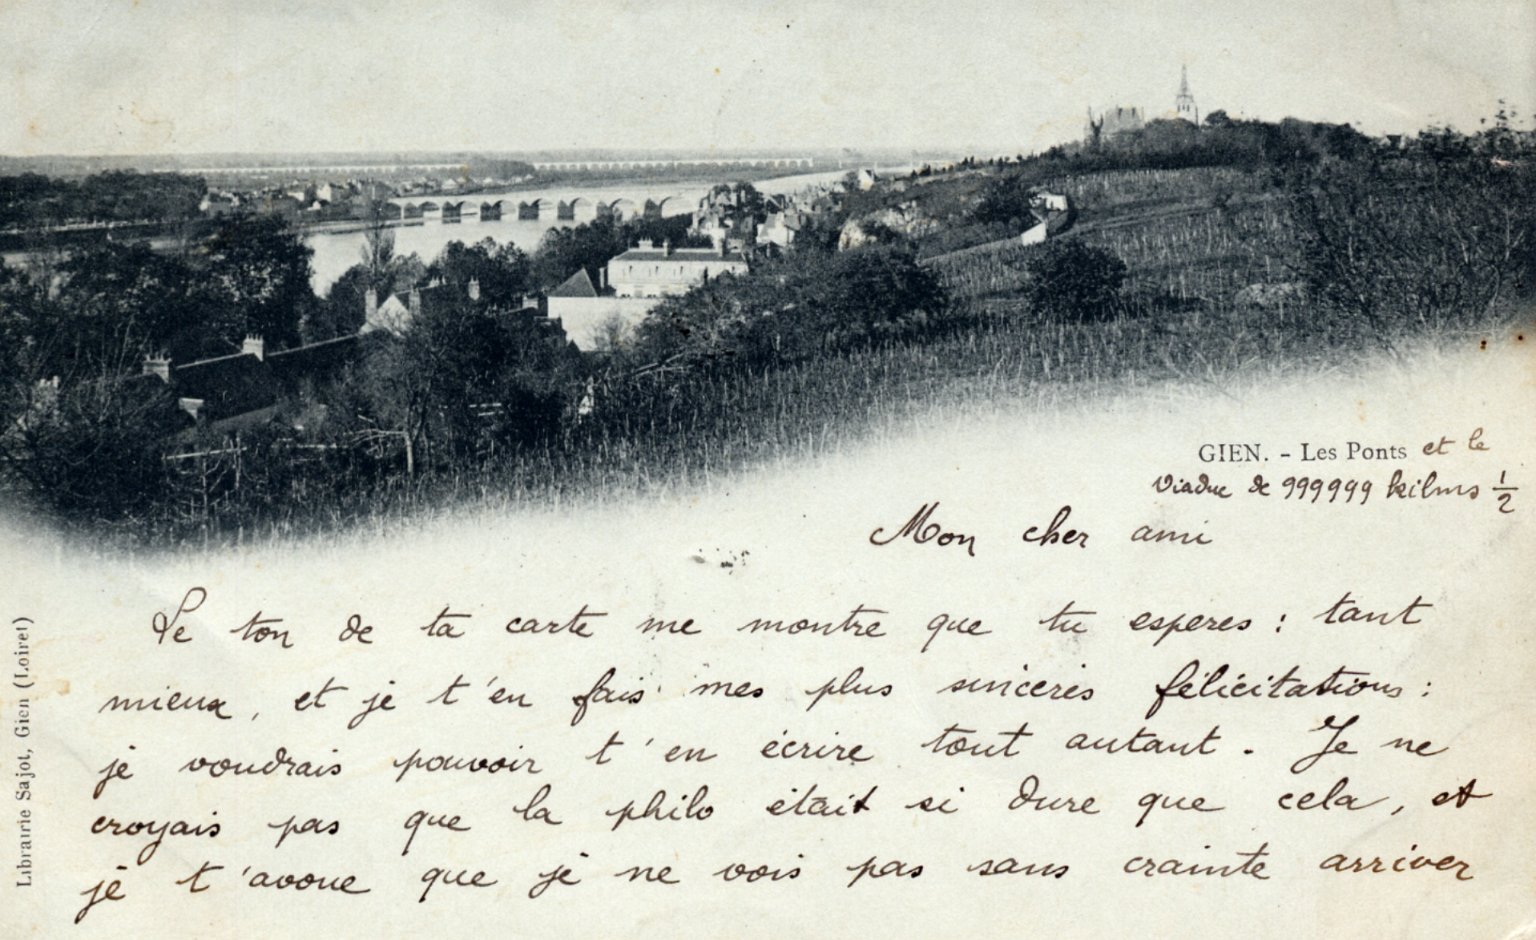 GIEN. - Les Ponts et le
viaduc de 999999 kilms 1/2
Mon cher ami
Le ton de ta carte me montre que tu espères : tant
mieux, et je t'en fais mes plus sincères félicitations :
je voudrais pouvoir t'en écrire tout autant. Je ne
croyais pas que la philo était si dure que cela, et
je t'avoue que je ne vois pas sans crainte arriver
Librairie Sajot, Gien (Loiret)